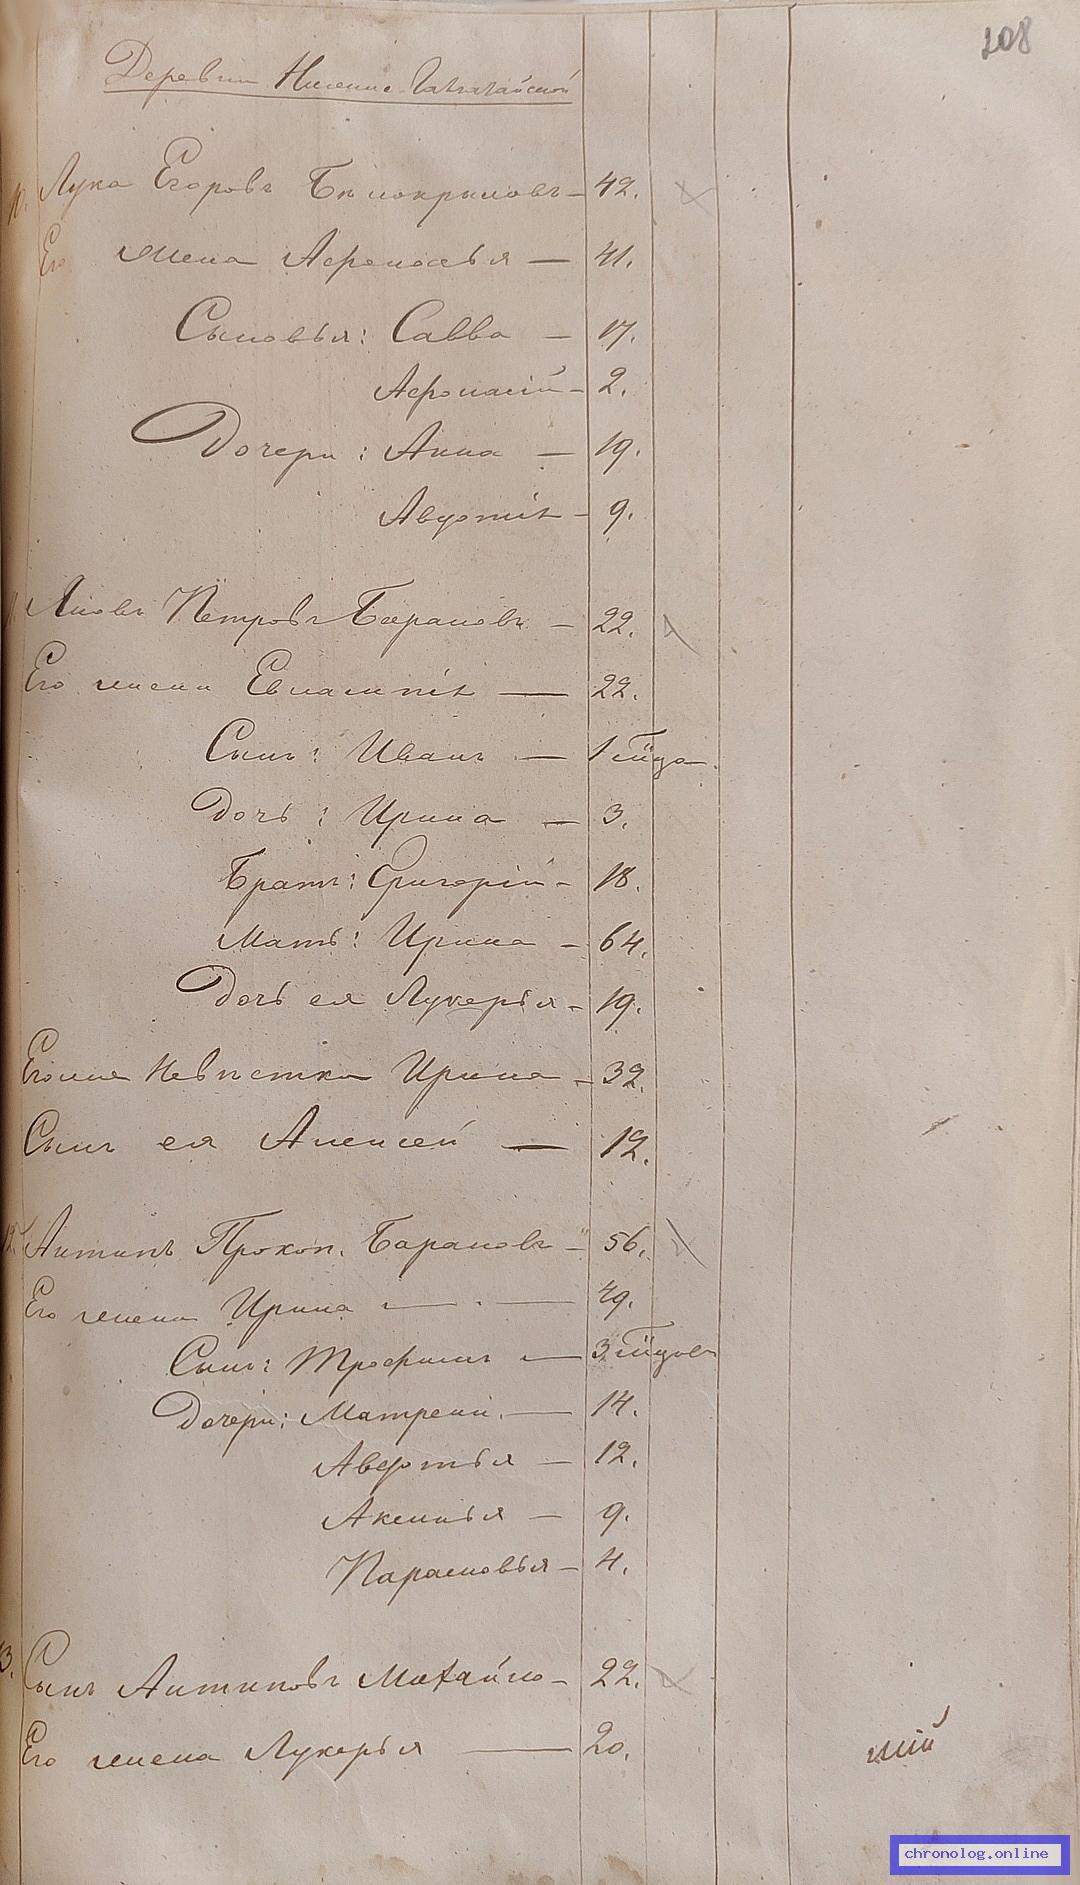 208
Деревни Нижне-
10. Лука Егоровъ Бѣлокрыловъ — 42.
Его жена Афонасья — 41.
Сыновья: Савва — 17.
Афонасій — 2.
Дочери: Анна — 19.
Авдотія — 9.
11. Яковъ Петровъ Барановъ — 22.
Его жена Евлампія — 22.
Сынъ: Иванъ — 1 года
Дочь: Ирина — 3.
Братъ: Григорій — 18.
Мать: Ирина — 64.
Дочь ея Лукерья — 19.
Невѣстка Ирина — 32.
Сынъ ея Алексей — 12.
12. Антипъ Прокоп. Барановъ — 56.
Его жена Ирина — 49.
Сынъ: Трофимъ — 3 годов
Дочери: Матрена — 14.
Авдотья — 12.
Аксинья — 9.
Парасковья — 4.
13. Сынъ Антиповъ Михайло — 22.
Его жена Лукерья — 20.
chronolog.online